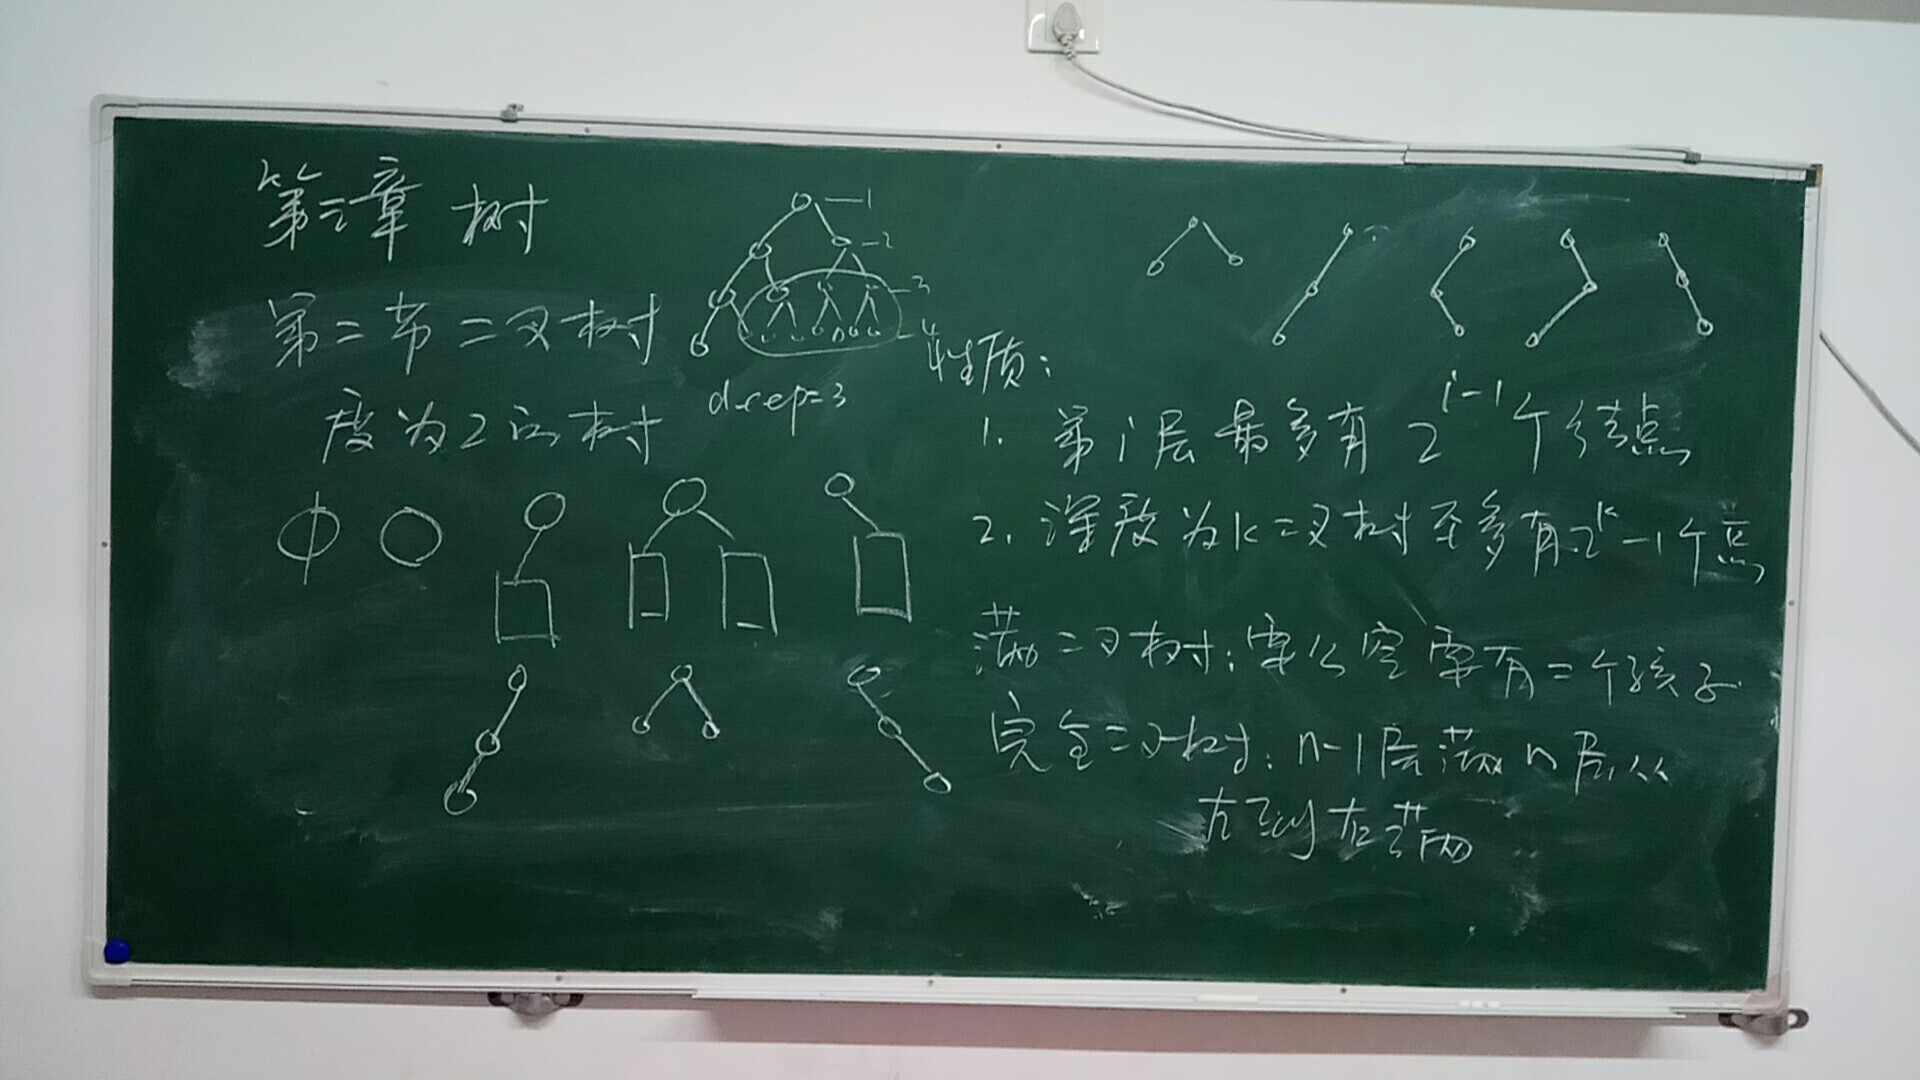 第三章 树
第二节 二叉树
度为2的树
1
2
3
4
deep=3
性质:
1. 第i层最多有 2^{i-1}个结点
2. 深度为k二叉树至多有2^k-1个点
满二叉树:要么空要有二个孩子
完全二叉树:n-1层满n层从
左到右满